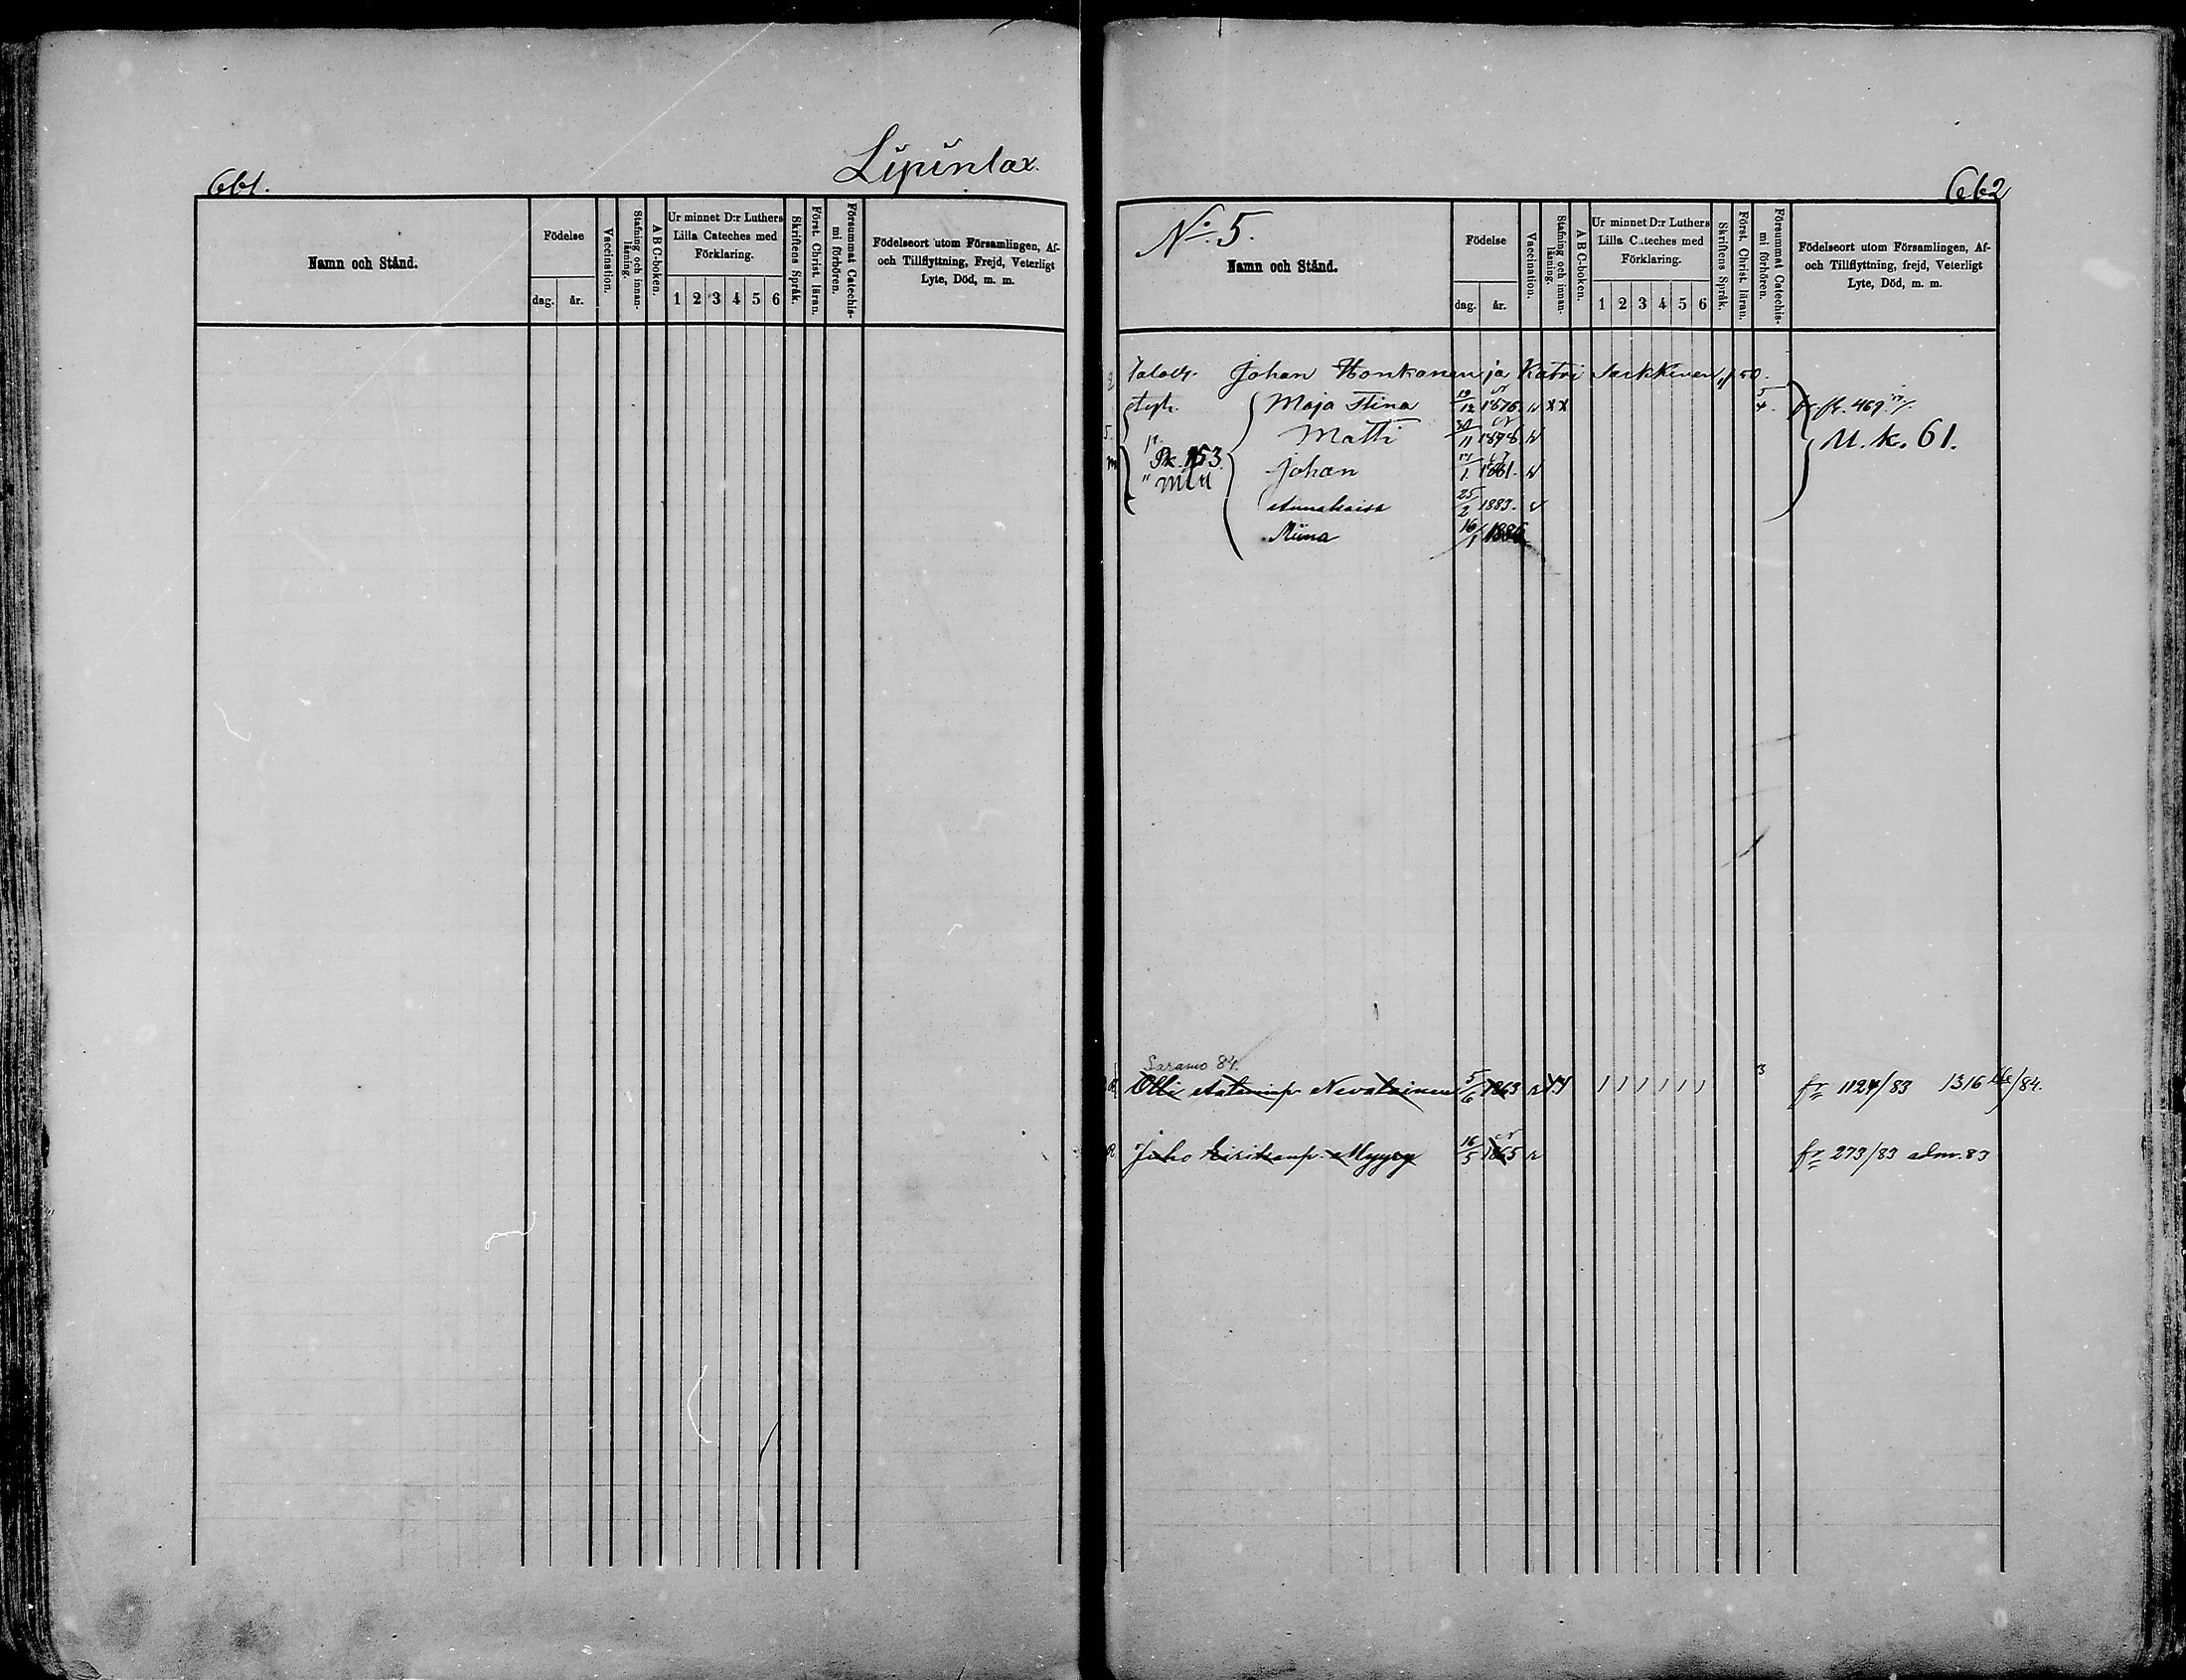 661.
Lipinlax.
Namn och Stånd.
Födelse
dag. år.
Vaccination.
Stafning och innan-läsning.
A B C-boken.
Ur minnet D:r Luthers
Lilla Cateches med
Förklaring.
1 2 3 4 5 6
Skriftens Språk.
Först. Christ. läran.
Försummat Catechis-mi förhören.
Födelseort utom Församlingen, Af-
och Tillflyttning, Frejd, Veterligt
Lyte, Död, m. m.
662
No. 5.
Namn och Stånd.
Födelse
dag. år.
Vaccination.
Stafning och innan-läsning.
A B C-boken.
Ur minnet D:r Luthers
Lilla Cateches med
Förklaring.
1 2 3 4 5 6
Skriftens Språk.
Först. Christ. läran.
Försummat Catechis-mi förhören.
Födelseort utom Församlingen, Af-
och Tillflyttning, frejd, Veterligt
Lyte, Död, m. m.
Johan Honkanen ja Katri Sarkkinen
Maja Stina 19/12 1876. v x x fr. 469
Matti 30/11 1878 v U. k. 61.
Pk. 153.
Johan 1881. v
Annakaisa 25/2 1883. v
Miina 16/1 1886
Saramo 84.
Olli Nevalainen 5/6 1863 3 fr 1124/83 1316 /84.
Juho Eirikanp. Myyry 16/5 1865 fr 273/83 adm. 83